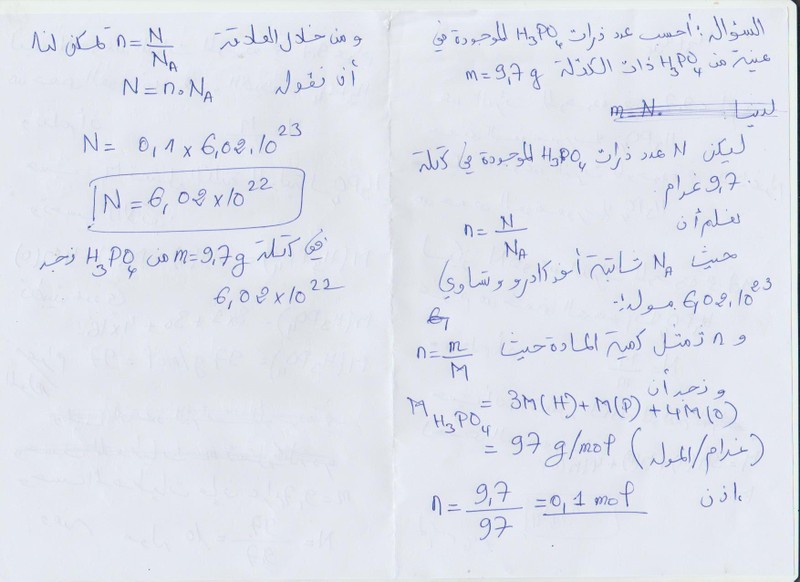 السؤال: أحسب عدد ذرات H₃PO₄ الموجودة في
عينة من H₃PO₄ ذات الكتلة m = 9,7 g
لدينا m = N.
ليكن N عدد ذرات H₃PO₄ الموجودة في كتلة
9,7 غرام
نعلم أن n = N/NA
حيث NA ثابتة أفوكادرو وتساوي
6,02.10²³ مول⁻¹
و n تمثل كمية المادة حيث n = m/M
و نجد أن M H₃PO₄ = 3M(H) + M(P) + 4M(O)
= 97 g/mol (غرام/المول)
اذن n = 9,7/97 = 0,1 mol
و من خلال العلاقة n = N/NA يمكن لنا
أن نقول N = n.NA
N = 0,1 × 6,02.10²³
N = 6,02 × 10²²
في كتلة m = 9,7 g من H₃PO₄ نجد
6,02 × 10²²